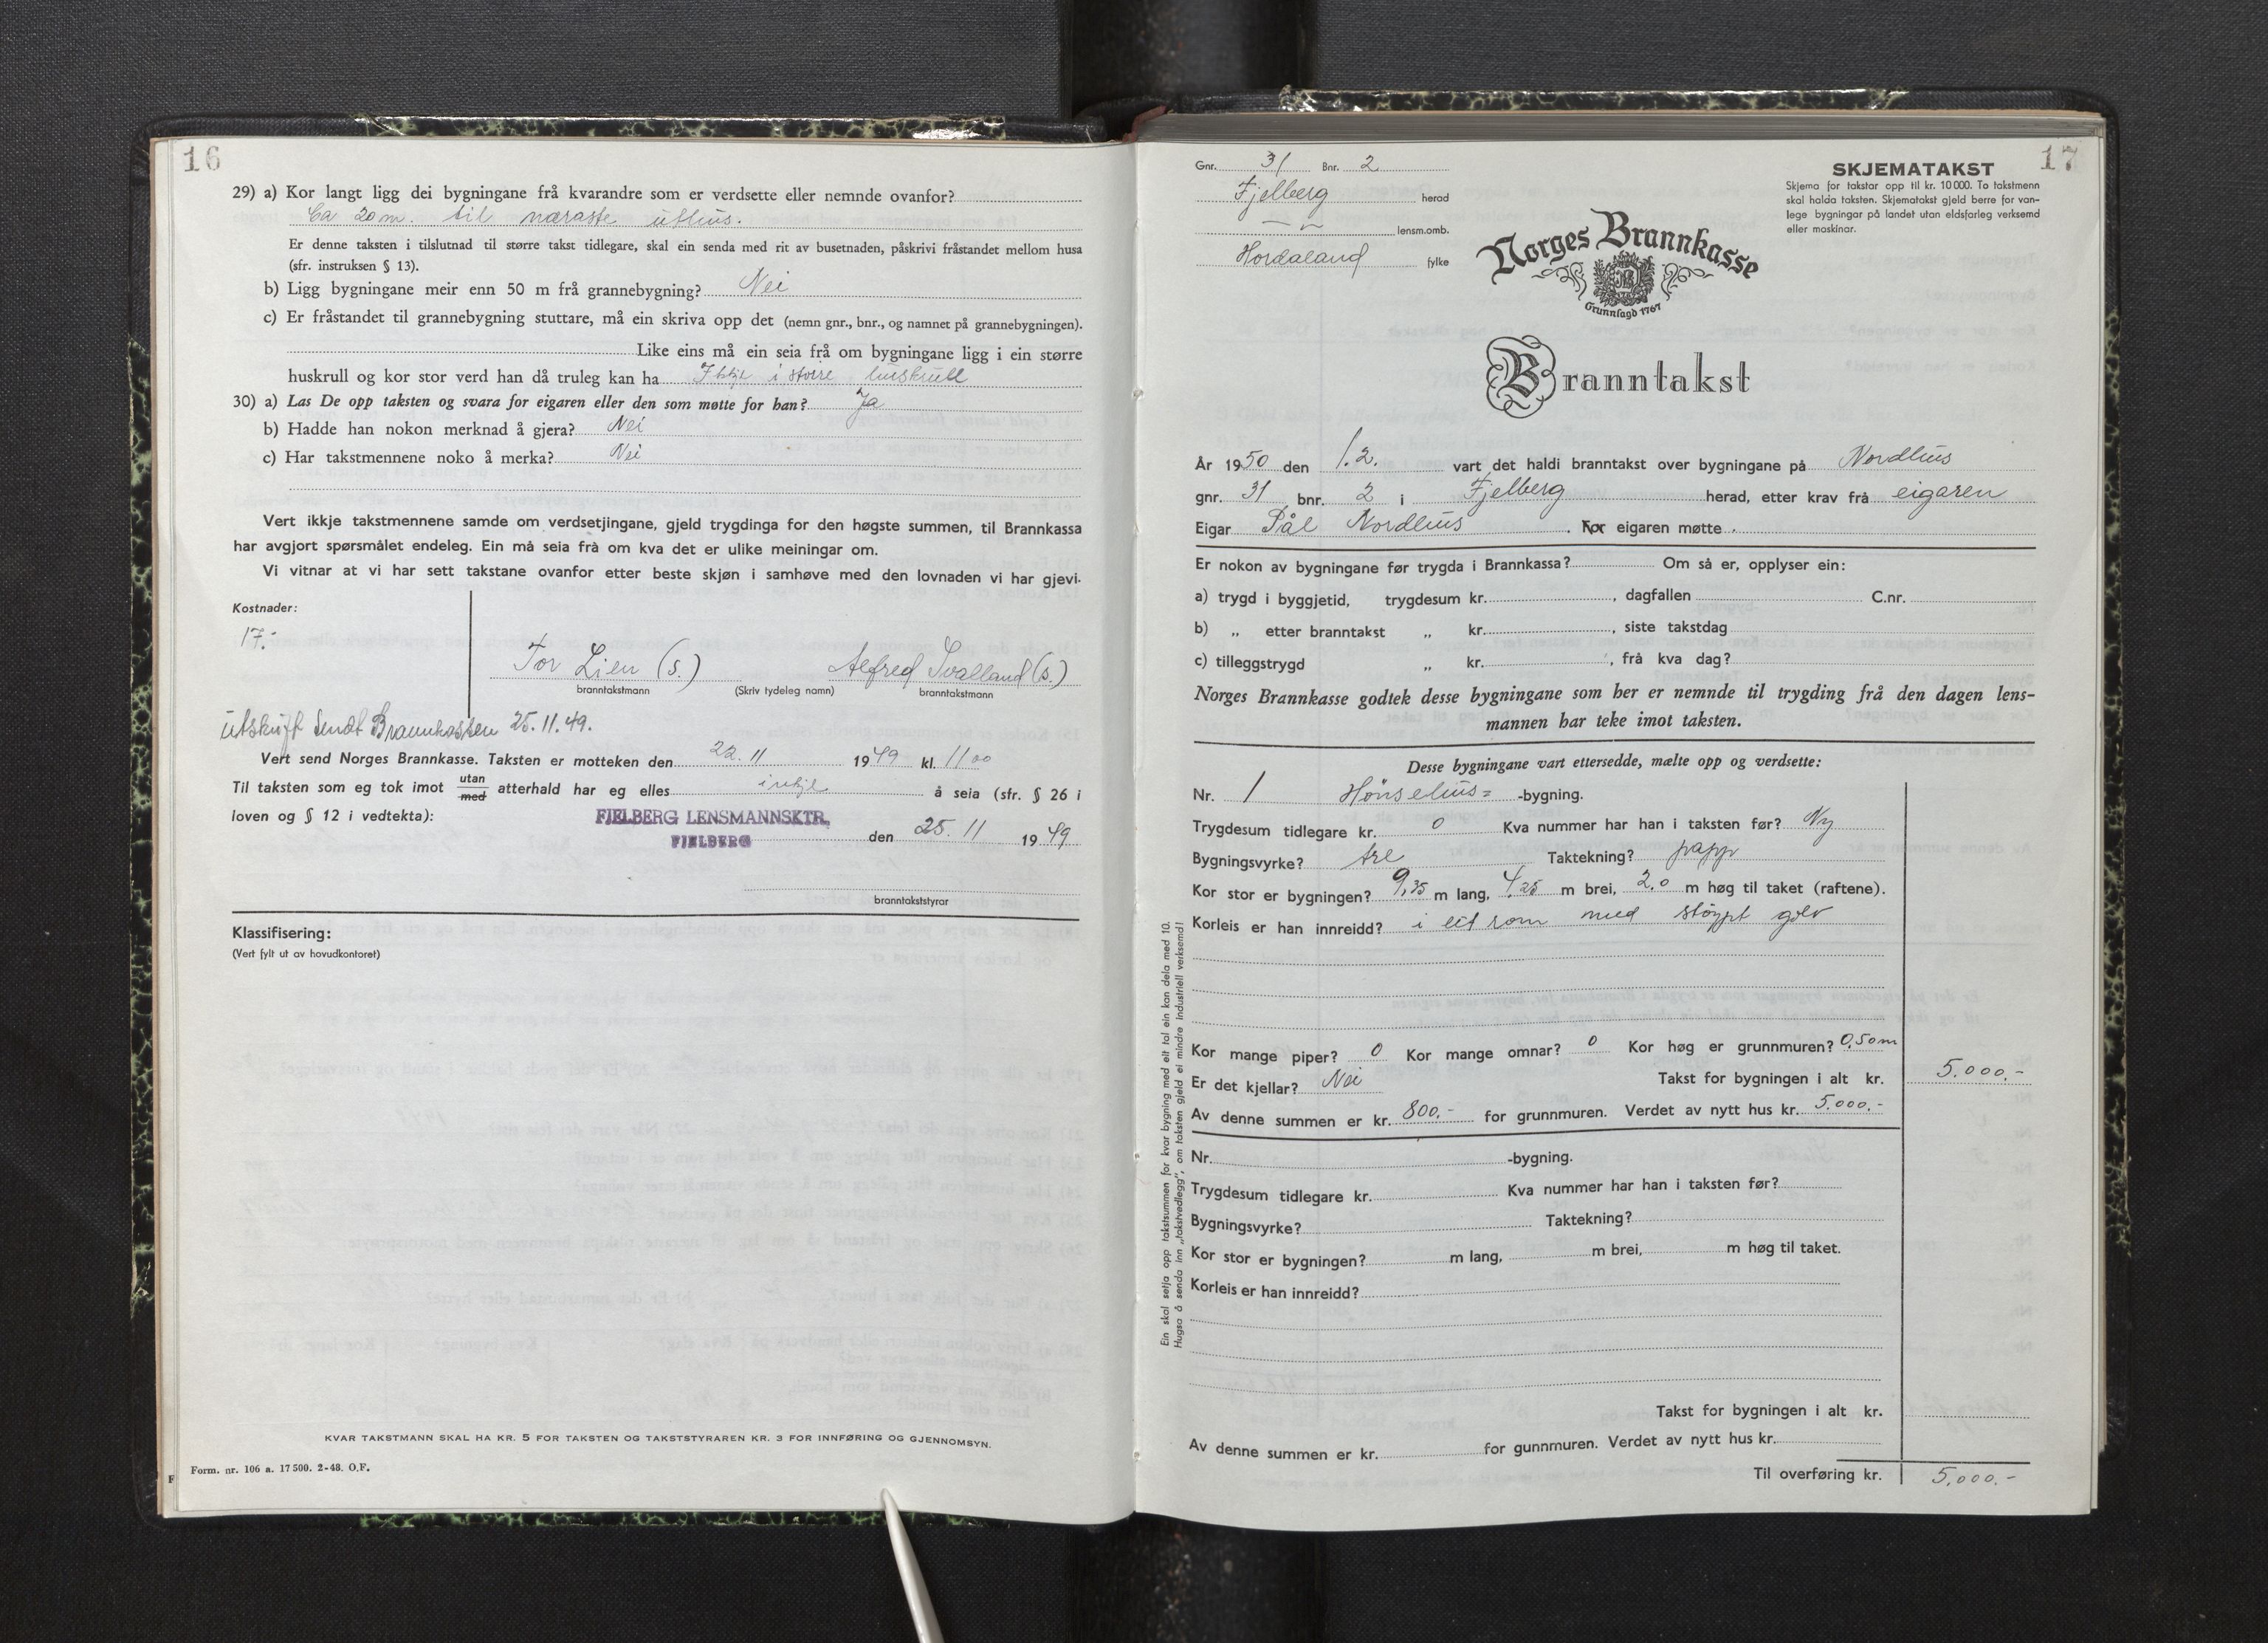 16
29) a) Kor langt ligg dei bygningane frå kvarandre som er verdsette eller nemnde ovanfor?
Ca 20 m. til næraste uthus.
Er denne taksten i tilslutnad til større takst tidlegare, skal ein senda med rit av busetnaden, påskrivi fråstandet mellom husa
(sfr. instruksen § 13).
b) Ligg bygningane meir enn 50 m frå grannebygning? Nei
c) Er fråstandet til grannebygning stuttare, må ein skriva opp det (nemn gnr., bnr., og namnet på grannebygningen).
Like eins må ein seia frå om bygningane ligg i ein større
huskrull og kor stor verd han då truleg kan ha Ikkje i større huskrull
30) a) Las De opp taksten og svara for eigaren eller den som møtte for han? Ja
b) Hadde han nokon merknad å gjera? Nei
c) Har takstmennene noko å merka? Nei
Vert ikkje takstmennene samde om verdsetjingane, gjeld trygdinga for den høgste summen, til Brannkassa
har avgjort spørsmålet endeleg. Ein må seia frå om kva det er ulike meiningar om.
Vi vitnar at vi har sett takstane ovanfor etter beste skjøn i samhøve med den lovnaden vi har gjevi.
Kostnader:
17.-
Tor Lien (s.) Alfred Svalland (s.)
branntakstmann (Skriv tydeleg namn) branntakstmann
Utskrift sendt Brannkassen 25.11.49.
Vert send Norges Brannkasse. Taksten er motteken den 22.11 1949 kl. 11 00
Til taksten som eg tok imot utan/med atterhald har eg elles inkje å seia (sfr. § 26 i
loven og § 12 i vedtekta):
FJELBERG LENSMANNSKTR.
FJELBERG den 25.11 1949
branntakststyrar
Klassifisering:
(Vert fylt ut av hovudkontoret)
KVAR TAKSTMANN SKAL HA KR. 5 FOR TAKSTEN OG TAKSTSTYRAREN KR. 3 FOR INNFØRING OG GJENNOMSYN.
Form. nr. 106 a. 17 500. 2-48. O.F.
F
17
Gnr. 31 Bnr. 2
Fjelberg herad
— " — lensm.omb.
Hordaland fylke
SKJEMATAKST
Skjema for takstar opp til kr. 10 000. To takstmenn
skal halda taksten. Skjematakst gjeld berre for van-
lege bygningar på landet utan eldsfarleg verksemd
eller maskinar.
Norges Brannkasse
Grunnlagd 1767
Branntakst
År 1950 den 1.2. vart det haldi branntakst over bygningane på Nordhus
gnr. 31 bnr. 2 i Fjelberg herad, etter krav frå eigaren
Eigar Pål Nordhus . For eigaren møtte .
Er nokon av bygningane før trygda i Brannkassa? Om så er, opplyser ein:
a) trygd i byggjetid, trygdesum kr. , dagfallen C.nr.
b) „ etter branntakst „ kr. , siste takstdag
c) tilleggstrygd „ kr. , frå kva dag?
Norges Brannkasse godtek desse bygningane som her er nemnde til trygding frå den dagen lens-
mannen har teke imot taksten.
Desse bygningane vart ettersedde, mælte opp og verdsette:
Nr. 1 Hönsehus= -bygning.
Trygdesum tidlegare kr. 0 Kva nummer har han i taksten før? Ny
Bygningsvyrke? tre Taktekning? papp
Kor stor er bygningen? 9,35 m lang, 4,25 m brei, 2,0 m høg til taket (raftene).
Korleis er han innreidd? i eit rom med støypt golv
Kor mange piper? 0 Kor mange omnar? 0 Kor høg er grunnmuren? 0,50 m
Er det kjellar? Nei Takst for bygningen i alt kr. 5.000,-
Av denne summen er kr. 800,- for grunnmuren. Verdet av nytt hus kr. 5.000,-
Nr. -bygning.
Trygdesum tidlegare kr. Kva nummer har han i taksten før?
Bygningsvyrke? Taktekning?
Kor stor er bygningen? m lang, m brei, m høg til taket.
Korleis er han innreidd?
Takst for bygningen i alt kr.
Av denne summen er kr. for gunnmuren. Verdet av nytt hus kr.
Til overføring kr. 5,000.-
Ein skal setja opp takstsummen for kvar bygning med eit tal ein kan dela med 10.
Hugsa å senda inn „takstvedlegg", om taksten gjeld ei mindre industriell verksemd!